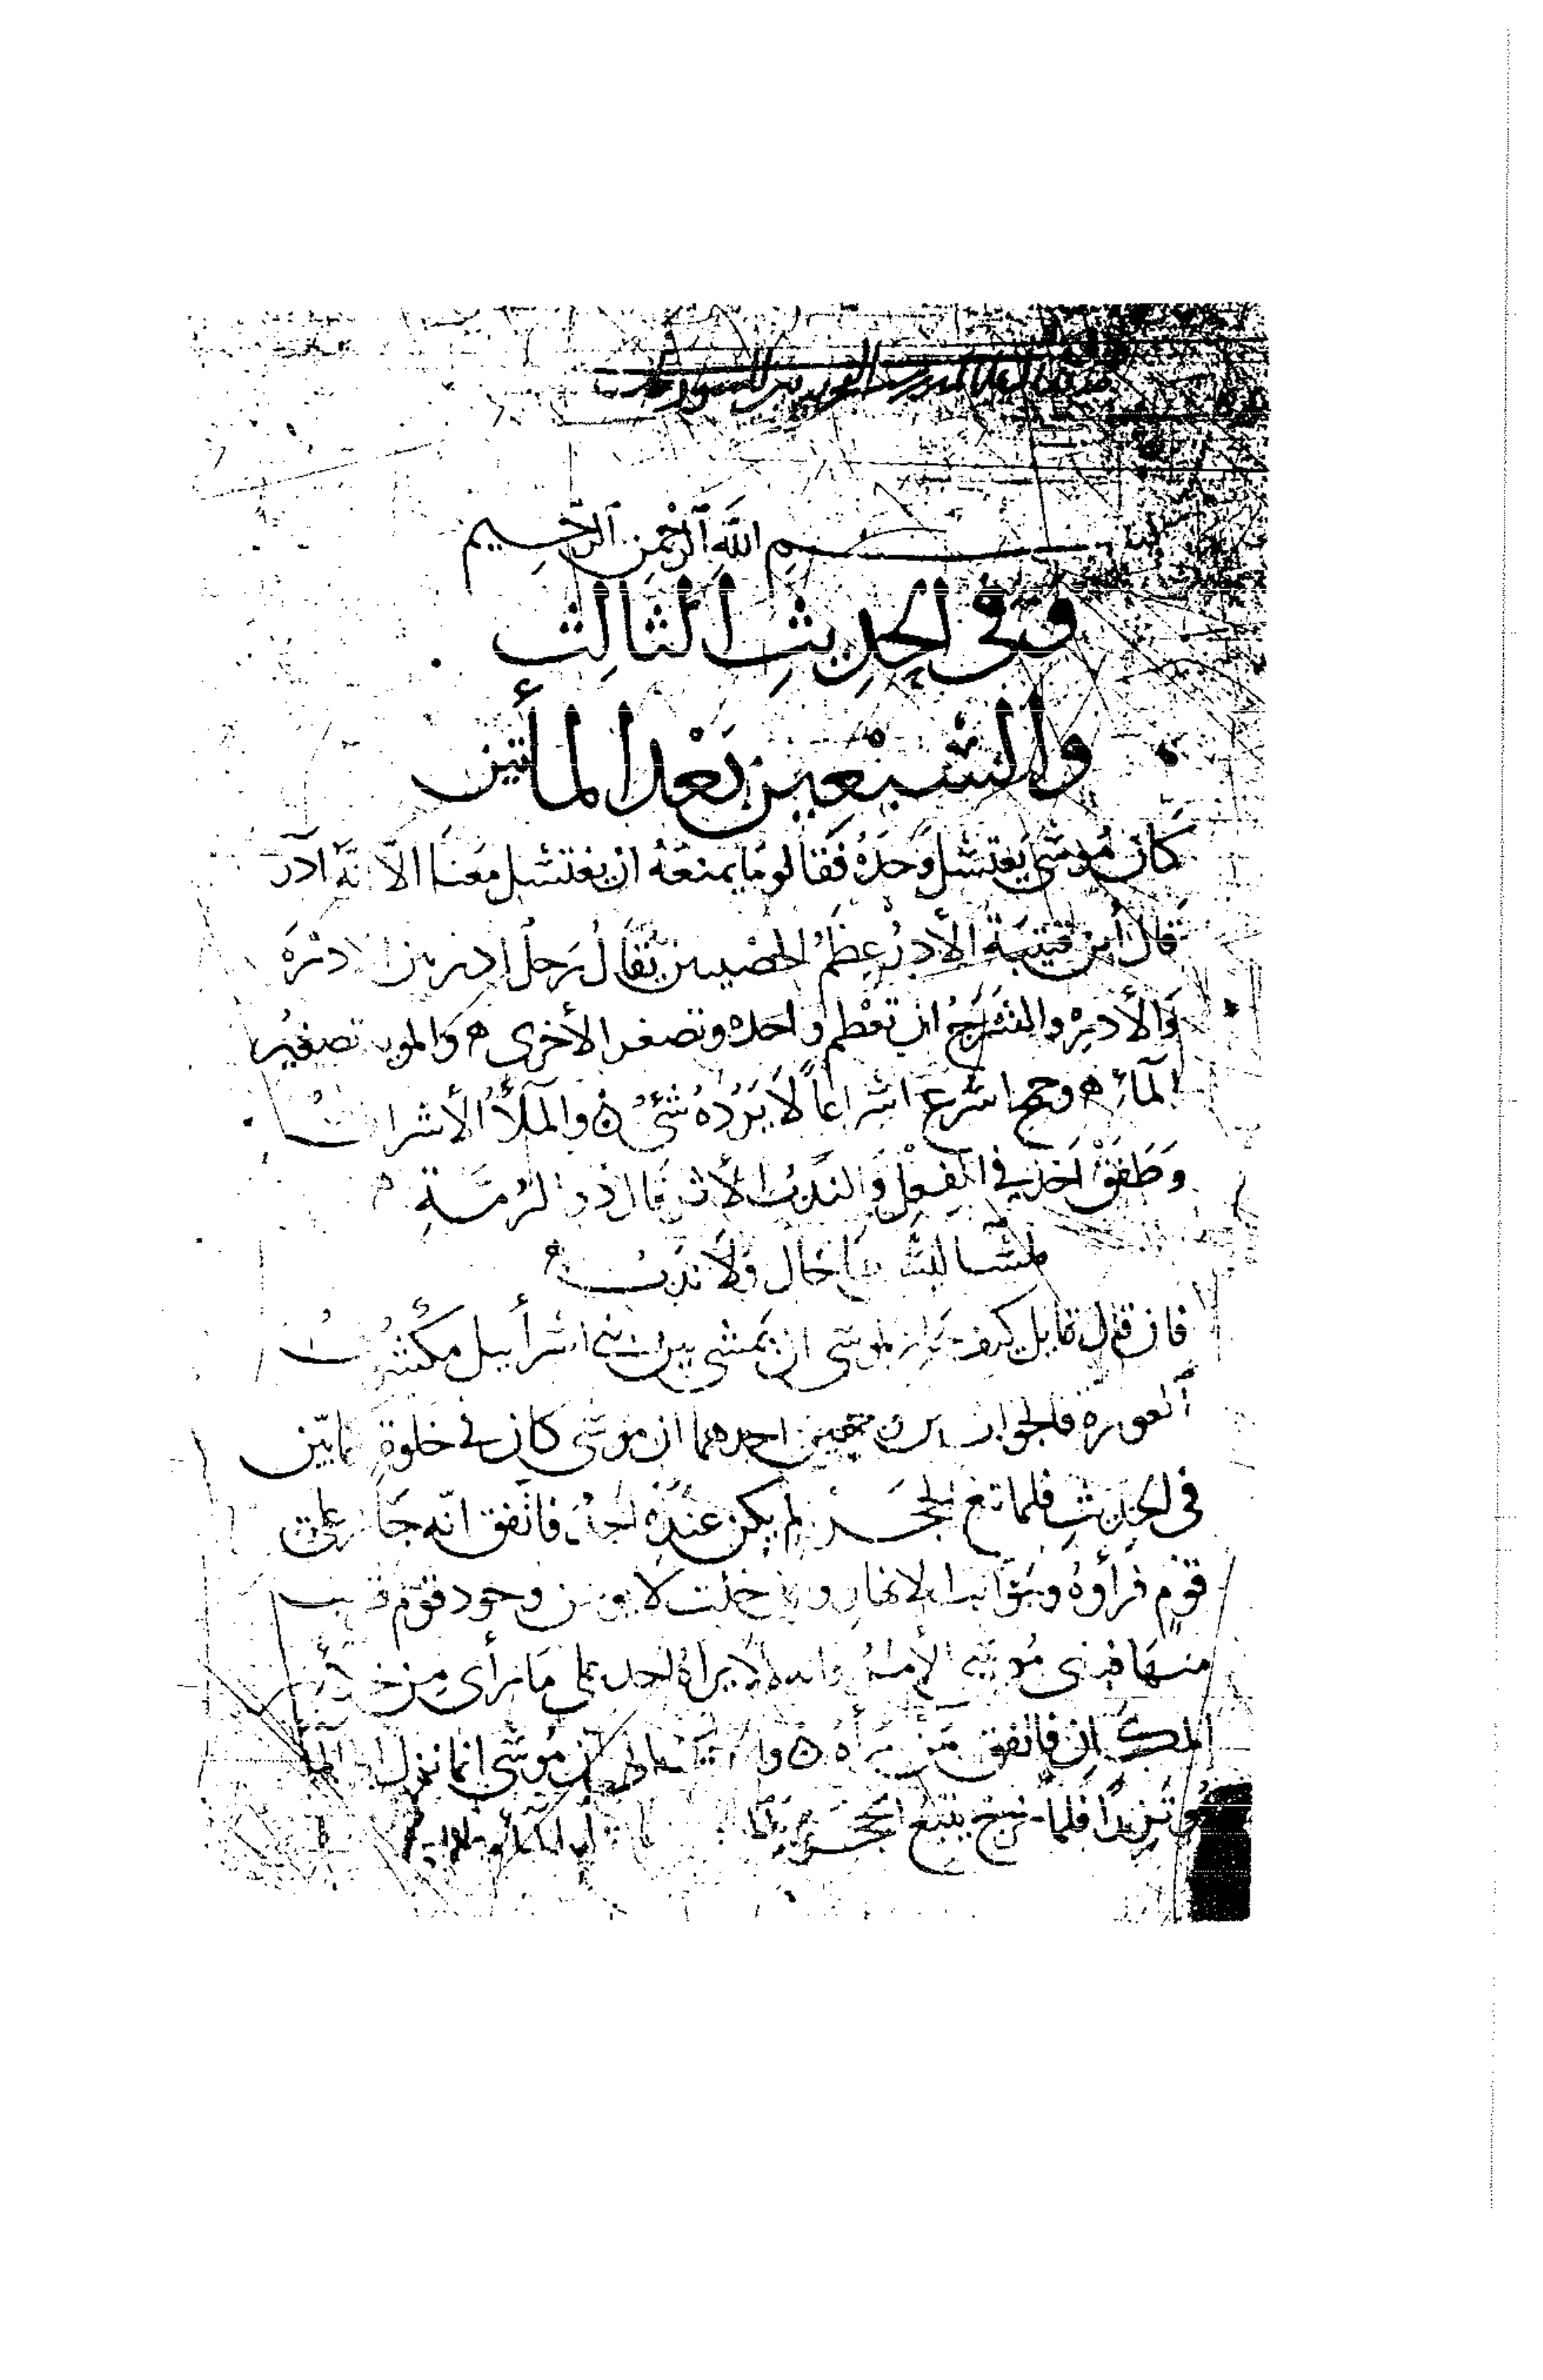 بسم الله الرحمن الرحيم
وفي الحديث الثالث
والسبعين بعد المأتين
كان موسى يغتسل وحده فقالو ما يمنعه ان يغتسل معنا الا انه آدر
قال ابن قتيبة الأدر عظم الخصيين يقال رجل ادر بين الادرة
والأدره والشرج ان تعظم واحده وتصغر الأخرى ه والمويه تصغير
المآء ه وجمح اسرع اسراعاً لا يرده شئ ه والملأ الأشراف
وطفق اخذ في الفعل والندب الأثر قال ذو الرمة
ملسا ليس بها خال ولا ندب ه
فان قال قايل كيف جاز لموسى ان يمشي بين بني اسرأييل مكشوف
العورة فالجواب من وجهين احدهما ان موسى كان في خلوة كما بين
في الحديث فلما تبع الحجر لم يكن عنده احد فاتفق انه جاز على
قوم فرأوه وجوانب الانهار وان خلت لا يومن وجود قوم قريب
منها فبنى موسى الأمر انه لا يراه احد على ما رأى من خلو
المكان فاتفق من رآه ه والثاني ان موسى انما نزل الى المآء
مؤتزرا فلما خرج يتبع الحجر